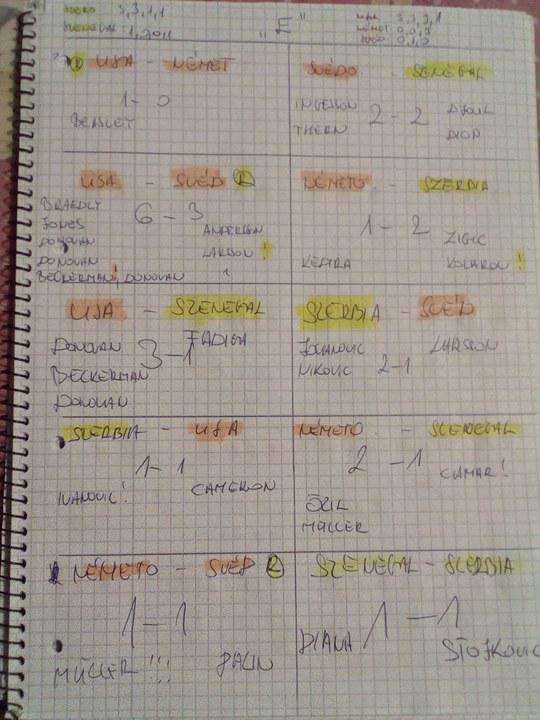 "E"
USA - NÉMET
1 - 0
BEASLEY
SVÉDO - SENEGAL
2 - 2
THERN
DIOUF
DIOP
USA - SVÉD
6 - 3
BRADLEY
JONES
DONOVAN
DONOVAN
BECKERMAN! DONOVAN
ANDERSON
LARSON!
NÉMETO - SZERBIA
1 - 2
KEDIRA
ZIGIC
KOLAROV!
USA - SZENEGAL
3 - 1
DONOVAN
BECKERMAN
DONOVAN
FADIGA
SZERBIA - SVÉD
2-1
IVANOVIC
NIKOVIC
LARSSON
SZERBIA - USA
1 - 1
IVANOVIC!
CAMERON
NÉMETO - SZENEGAL
2 - 1
ÖZIL
MÜLLER
CAMAR!
NÉMETO - SVÉD
1 - 1
MÜLLER!!!
SZENEGAL - SZERBIA
1 - 1
DIAWA
STOJKOVIC